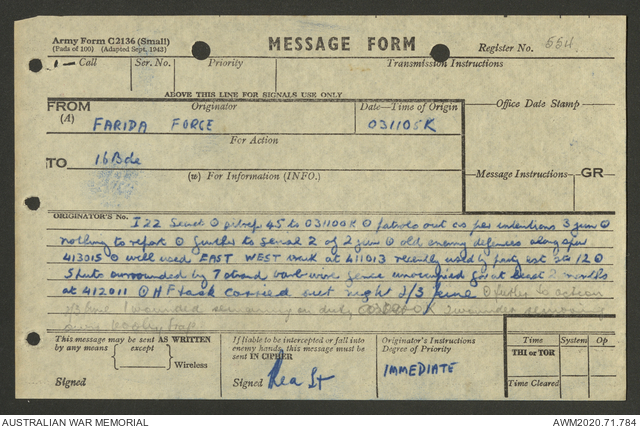 Army Form C2136 (Small)
(Pads of 100) (Adapted Sept. 1943)
MESSAGE FORM
Register No. 554
1 Call
Ser. No.
Priority
Transmission Instructions
ABOVE THIS LINE FOR SIGNALS USE ONLY
FROM
Originator
Date—Time of Origin
Office Date Stamp
(A)
FARIDA FORCE
031105K
For Action
TO
16 Bde
(W) For Information (INFO.)
Message Instructions
GR
ORIGINATOR'S No.
I22 Secret sitrep 45 to 031100K patrols out as per intentions 3 jun
nothing to report further to serial 2 of 2 jun old enemy defences along spur
413015 well used EAST WEST track at 411013 recently used by party est 12
5 huts surrounded by 7 strand barb wire fence unoccupied for at least 2 months
at 412011 HF task carried out night 2/3 June further to action
June 1 wounded remaining on duty 2 wounded
booby trap
This message may be sent AS WRITTEN
by any means except
Wireless
Signed
If liable to be intercepted or fall into
enemy hands, this message must be
sent IN CIPHER
Signed
Originator's Instructions
Degree of Priority
IMMEDIATE
Time
System
Op
THI or TOR
Time Cleared
AUSTRALIAN WAR MEMORIAL
AWM2020.71.784